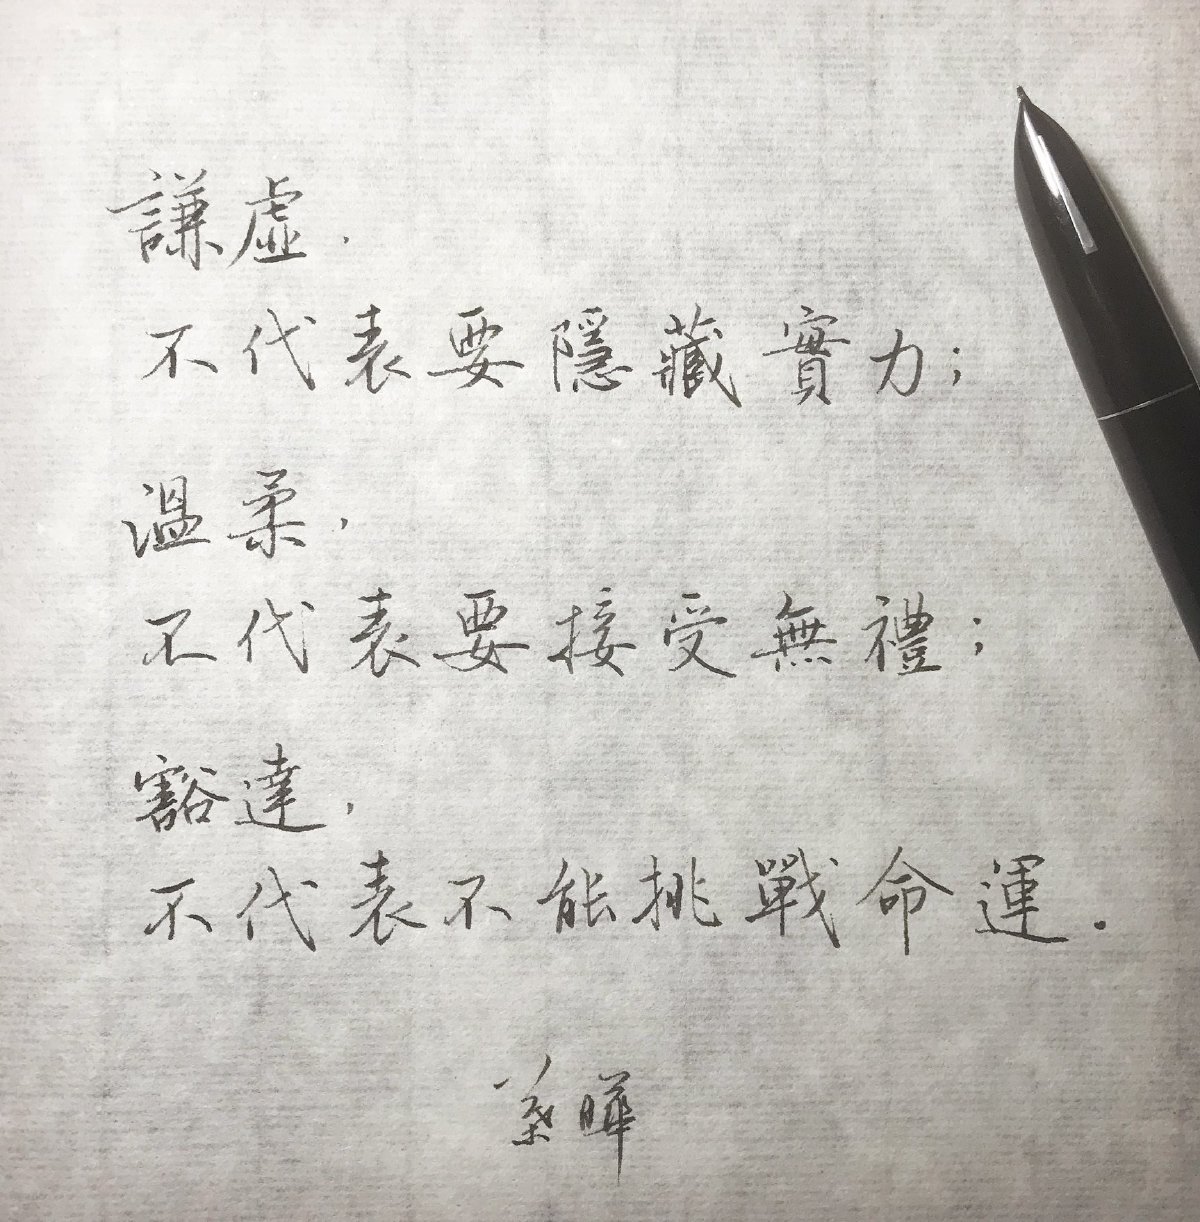 謙虛，
不代表要隱藏實力；
溫柔，
不代表要接受無禮；
豁達，
不代表不能挑戰命運．